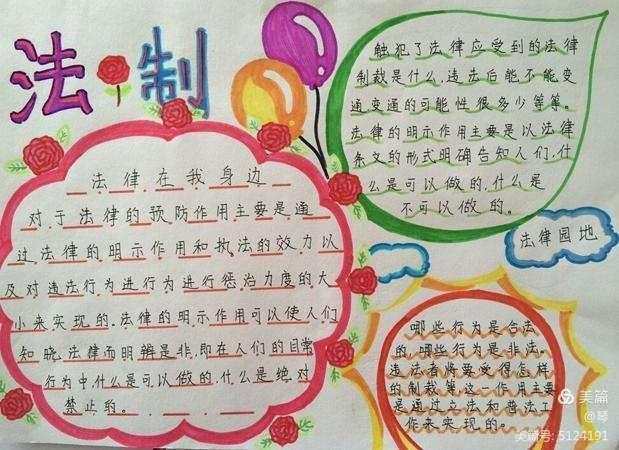 法制
法律在我身边
对于法律的预防作用主要是通
过法律的明示作用和执法的效力以
及对违法行为进行为进行惩治力度的大
小来实现的.法律的明示作用可以使人们
知晓法律而明辨是非,即在人们的日常
行为中,什么是可以做的,什么是绝对
禁止的。
触犯了法律应受到的法律
制裁是什么,违法后能不能变
通变通的可能性很多少等等。
法律的明示作用主要是以法律
条文的形式明确告知人们,什
么是可以做的,什么是
不可以做的。
法律园地
哪些行为是合法
的,哪些行为是非法。
违法者将要受得怎样
的制裁等,这一作用主要
是通过立法和普法工
作来实现的。
美篇
@琴
美篇号: 5124191